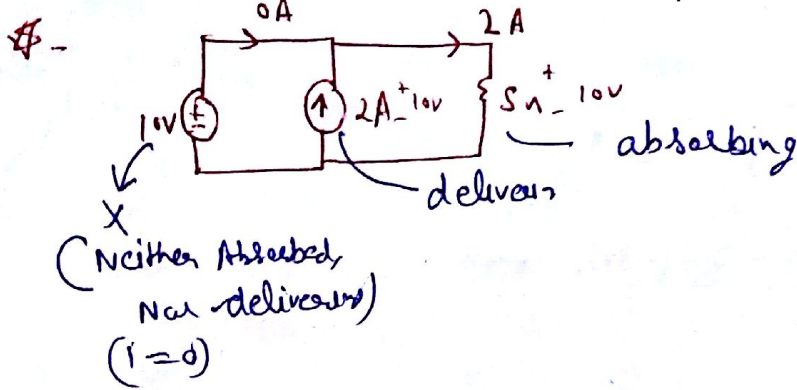 0A
2A
10V ±
2A + 10V -
5Ω + 10V -
absorbing
delivers
X
(Neither Absorbed,
Nor delivered)
(I=0)